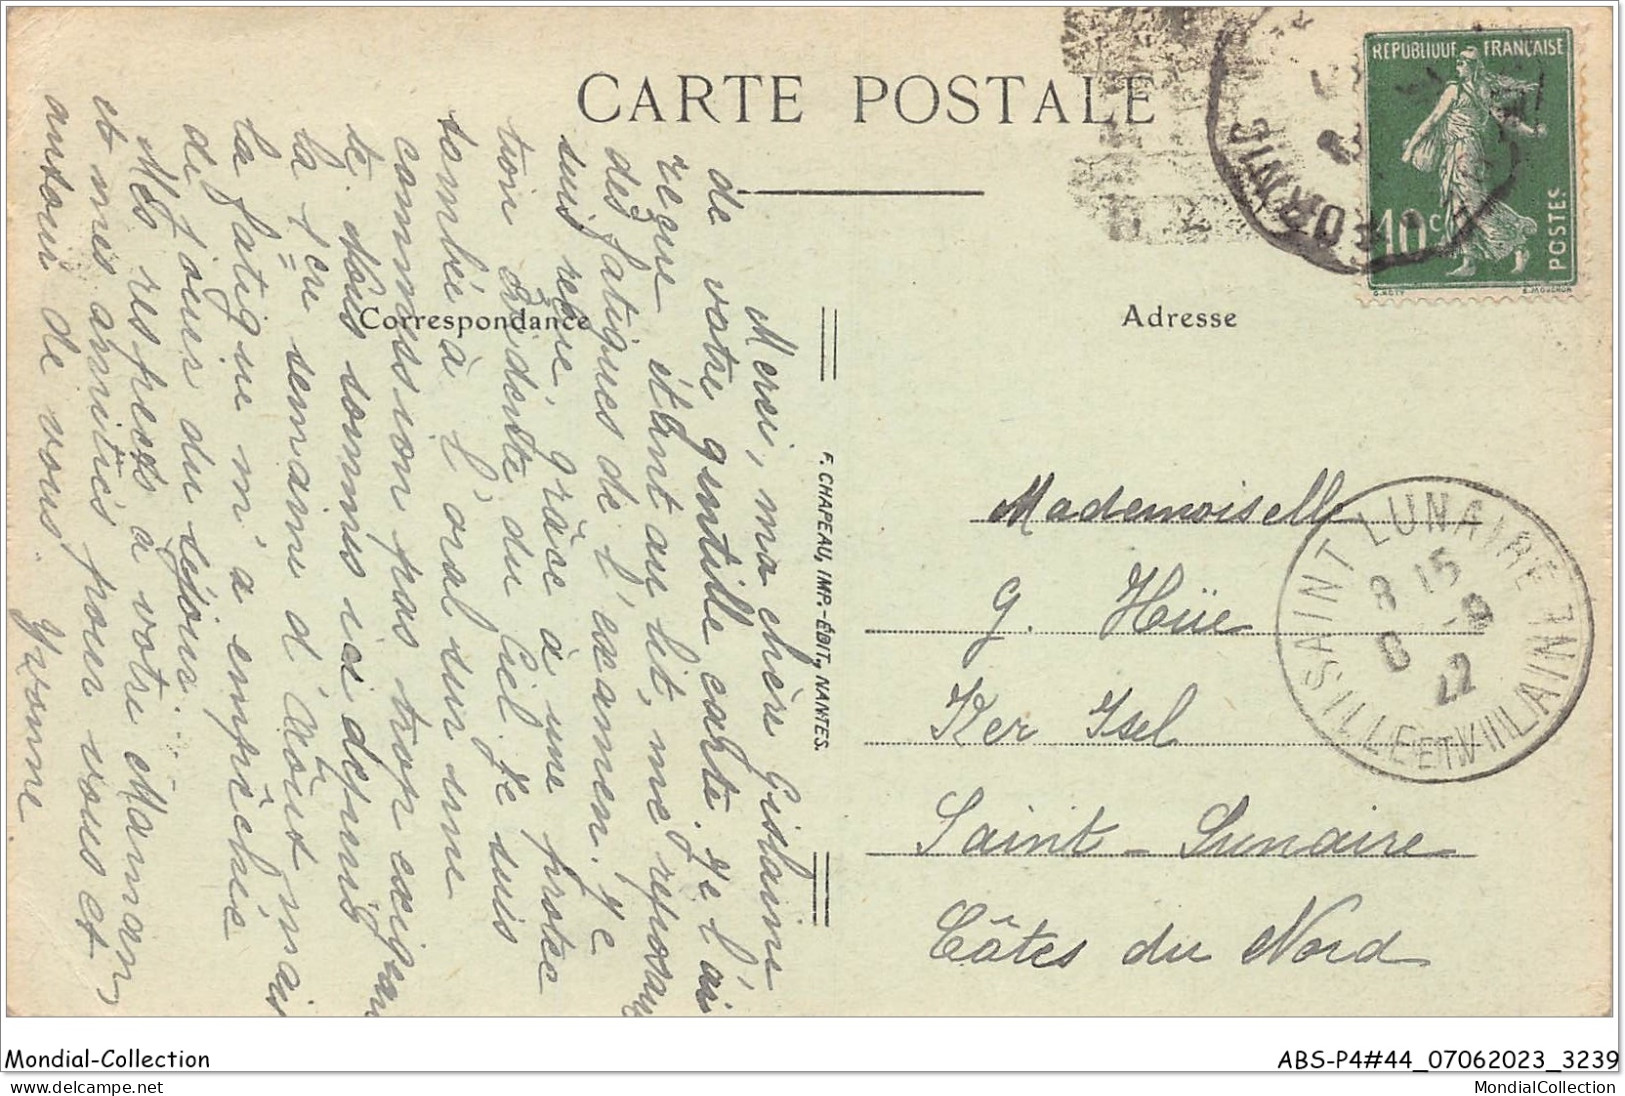 CARTE POSTALE
RÉPUBLIQUE FRANÇAISE
10c
POSTES
Correspondance
Adresse
Merci, ma chère Gislaine
de votre gentille carte. Je l'ai
reçue étant au lit, me reposant
des fatigues de l'examen. Je
suis reçue, grâce à une protec
tion évidente du Ciel. Je suis
tombée à l'oral sur une
commission pas trop exigean
te. Nous sommes ici depuis
la 1ère semaine d'Août mais
la fatigue m'a empêchée
de jouir du séjour.
Mes respects à votre Maman,
et mes amitiés pour vous et
autour de vous.
Yvonne
F. CHAPEAU, IMP.-ÉDIT., NANTES.
Mademoiselle
G. Hüe
Ker Ysel
Saint-Lunaire
Côtes du Nord
SAINT LUNAIRE
8 15
22
ILLE ET VILAINE
Mondial-Collection
ABS-P4#44_07062023_3239
delcampe.net
MondialCollection